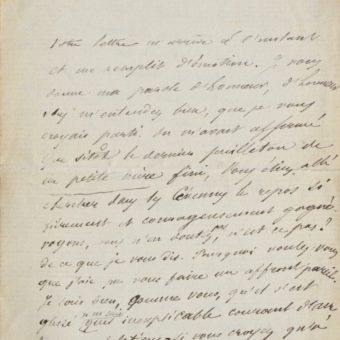 Votre lettre m'arrive à l'instant
et me remplit d'émotion. Je vous
donne ma parole d'honneur, d'honneur
m'entendez bien, que je vous
croyais parti. On m'avait affirmé
que sitôt le dernier feuilleton de
la petite mère fini, vous étiez allé
chercher dans les Cévennes le repos si
fièrement et courageusement gagné
voyons, vous n'en doutez pas, n'est ce pas?
de ce que je vous dis. Pourquoi voulez vous
que j'aie pu vous faire un affront pareil.
Je sais bien, comme vous, qu'il s'est
glissé je ne sais quel inexplicable courant d'air
si vous croyez qu'à